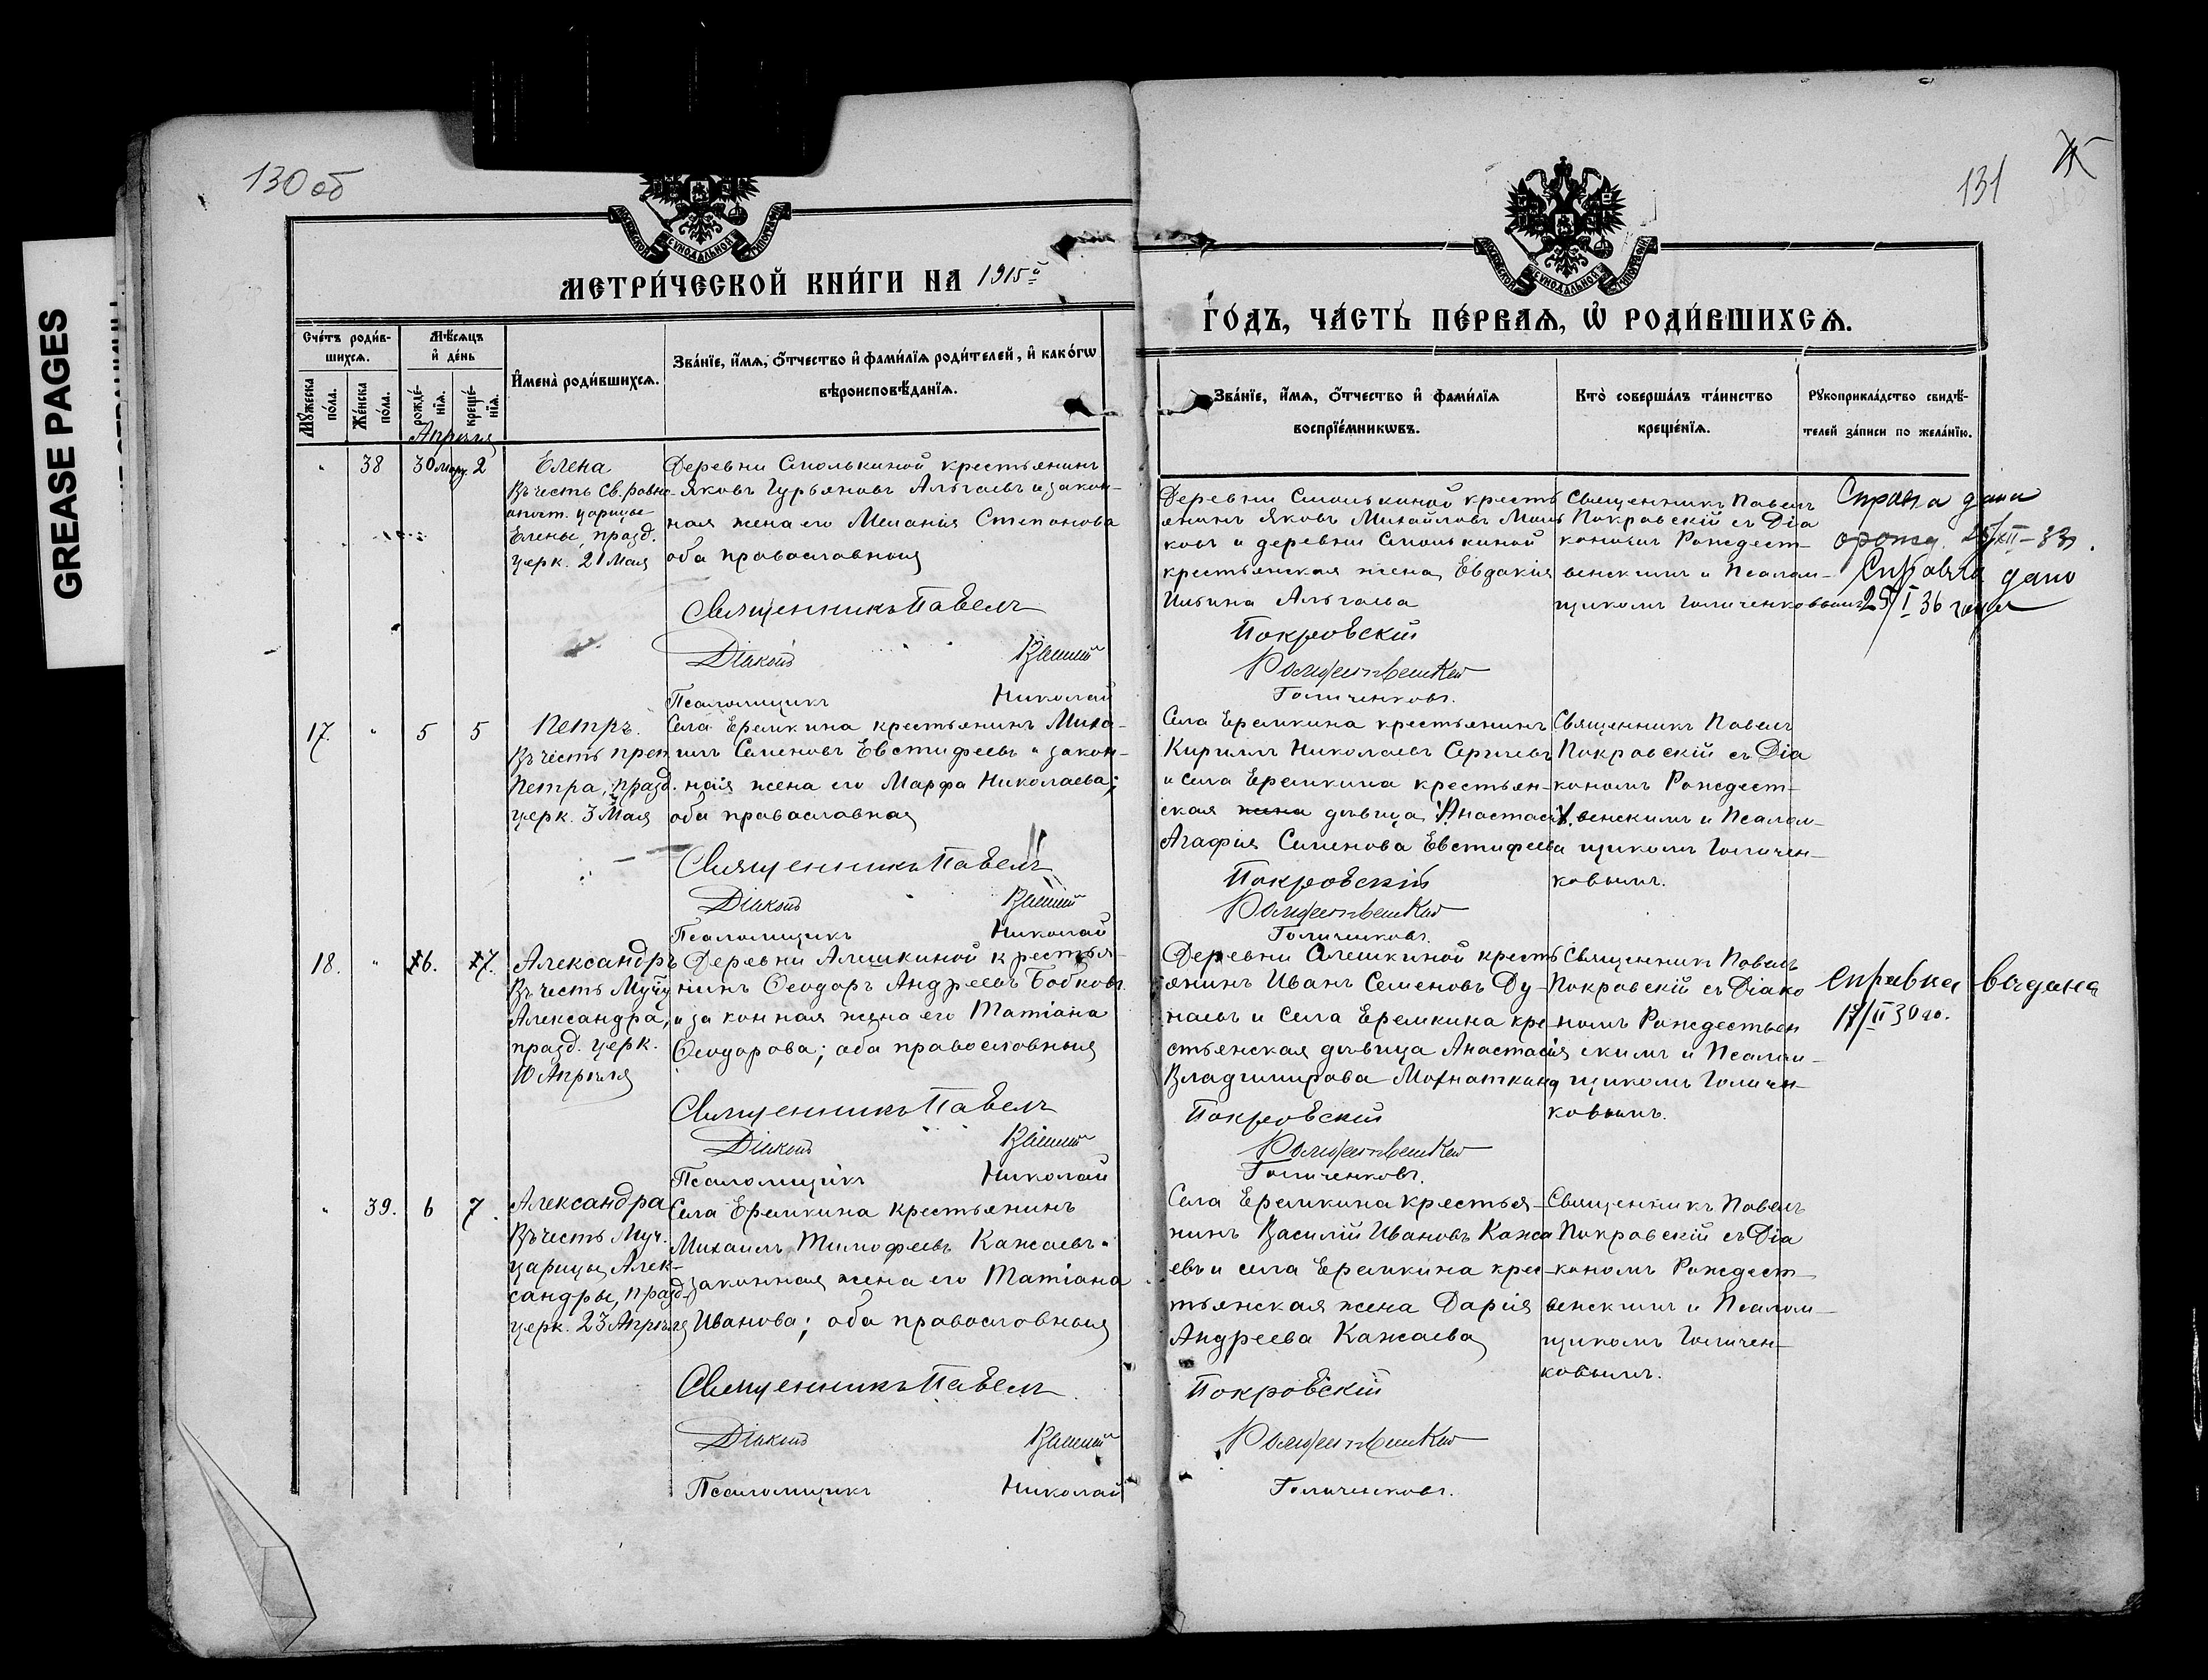 130 об
131
GREASE PAGES
МЕТРИ́ЧЕСКОЙ КНИ́ГИ НА 1915й
ГО́ДЪ, ЧА́СТЬ ПЕ́РВАѦ, Ѡ҆ РОДИ́ВШИХСѦ.
Сче́тъ роди́в-
шихсѧ.
Мꙋ́жеска по́ла.
Же́нска по́ла.
Мѣ́сѧцъ
и҆ де́нь
рожде́-нїѧ.
креще́-нїѧ.
И҆мена̀ роди́вшихсѧ.
Зва́нїе, и҆́мѧ, ѻ҆́тчество и҆ фами́лїѧ роди́телей, и҆ како́гѡ
вѣроисповѣ́данїѧ.
Зва́нїе, и҆́мѧ, ѻ҆́тчество и҆ фами́лїѧ
воспрїе́мникѡвъ.
Кто̀ соверша́лъ та́инство
креще́нїѧ.
Рꙋкоприкла́дство свидѣ́-
телей за́писи по жела́нїю.
Апрѣля
38 30 Мар. 2
Елена
Въ честь Св. равно-
апост. царицы
Елены, празд.
церк. 21 Мая
Деревни Смолькиной крестьянинъ
Яковъ Гурьяновъ Альгаевъ и закон-
ная жена его Меланія Степанова
оба православныя
Священникъ Павелъ
Діаконъ
Псаломщикъ Николай
Деревни Смолькиной кресть
янинъ Яковъ Михайловъ
ковъ и деревни Смолькиной
крестьянская жена Евдакія
Ильина Альгаева
Покровскій
Рождественскій
Голиченковъ.
Священникъ Павелъ
Покровскій съ Діа
кономъ Рождест-
венскимъ и Псалом-
щикомъ Голиченковымъ
Справка дана
о рожд. 25/XII-33
Справка дано
25/I 36 года
17. 5 5
Петръ.
Въ честь преп
Петра, празд.
церк. 3 Мая
Села Еремкина крестьянинъ Миха-
илъ Семеновъ Евстифеевъ и закон-
ная жена его Марфа Николаева;
оба православная
Священникъ Павелъ
Діаконъ
Псаломщикъ Николай
Села Еремкина крестьянинъ
Кириллъ Николаевъ Сергеевъ
и села Еремкина крестьян-
ская жена дѣвица Анастасія
Агафія Семенова Евстифеева
Покровскій
Рождественскій
Голиченковъ.
Священникъ Павелъ
Покровскій съ Діа
кономъ Рождест-
венскимъ и Псалом-
щикомъ Голичен-
ковымъ.
18. 6. 7.
Александръ
Въ честь Муч
Александра,
празд. церк.
10 Апрѣля
Деревни Алешкиной крестья-
нинъ Ѳеодоръ Андреевъ Бобковъ
и законная жена его Татіана
Ѳеодорова; оба православныя
Священникъ Павелъ
Діаконъ
Псаломщикъ Николай
Деревни Алешкиной кресть
янинъ Иванъ Семеновъ Ду-
наевъ и Села Еремкина кре-
стьянская дѣвица Анастасія
Владимирова Мохнаткина
Покровскій
Рождественскій
Голиченковъ.
Священникъ Павелъ
Покровскій съ Діако
номъ Рождествен
скимъ и Псалом-
щикомъ Голичен-
ковымъ.
Справка выдана
17/II 30 го.
39. 6 7.
Александра
Въ честь Муч.
царицы Алек-
сандры, празд.
церк. 23 Апрѣля
Села Еремкина крестьянинъ
Михаилъ Тимофеевъ Кажаевъ и
законная жена его Татіана
Иванова; оба православныя
Священникъ Павелъ
Діаконъ
Псаломщикъ Николай
Села Еремкина крестья-
нинъ Василій Ивановъ Кажа
евъ и села Еремкина крес-
тьянская жена Дарія
Андреева Кажаева
Покровскій
Рождественскій
Голиченковъ.
Священникъ Павелъ
Покровскій съ Діа
кономъ Рождест-
венскимъ и Псалом-
щикомъ Голичен-
ковымъ.